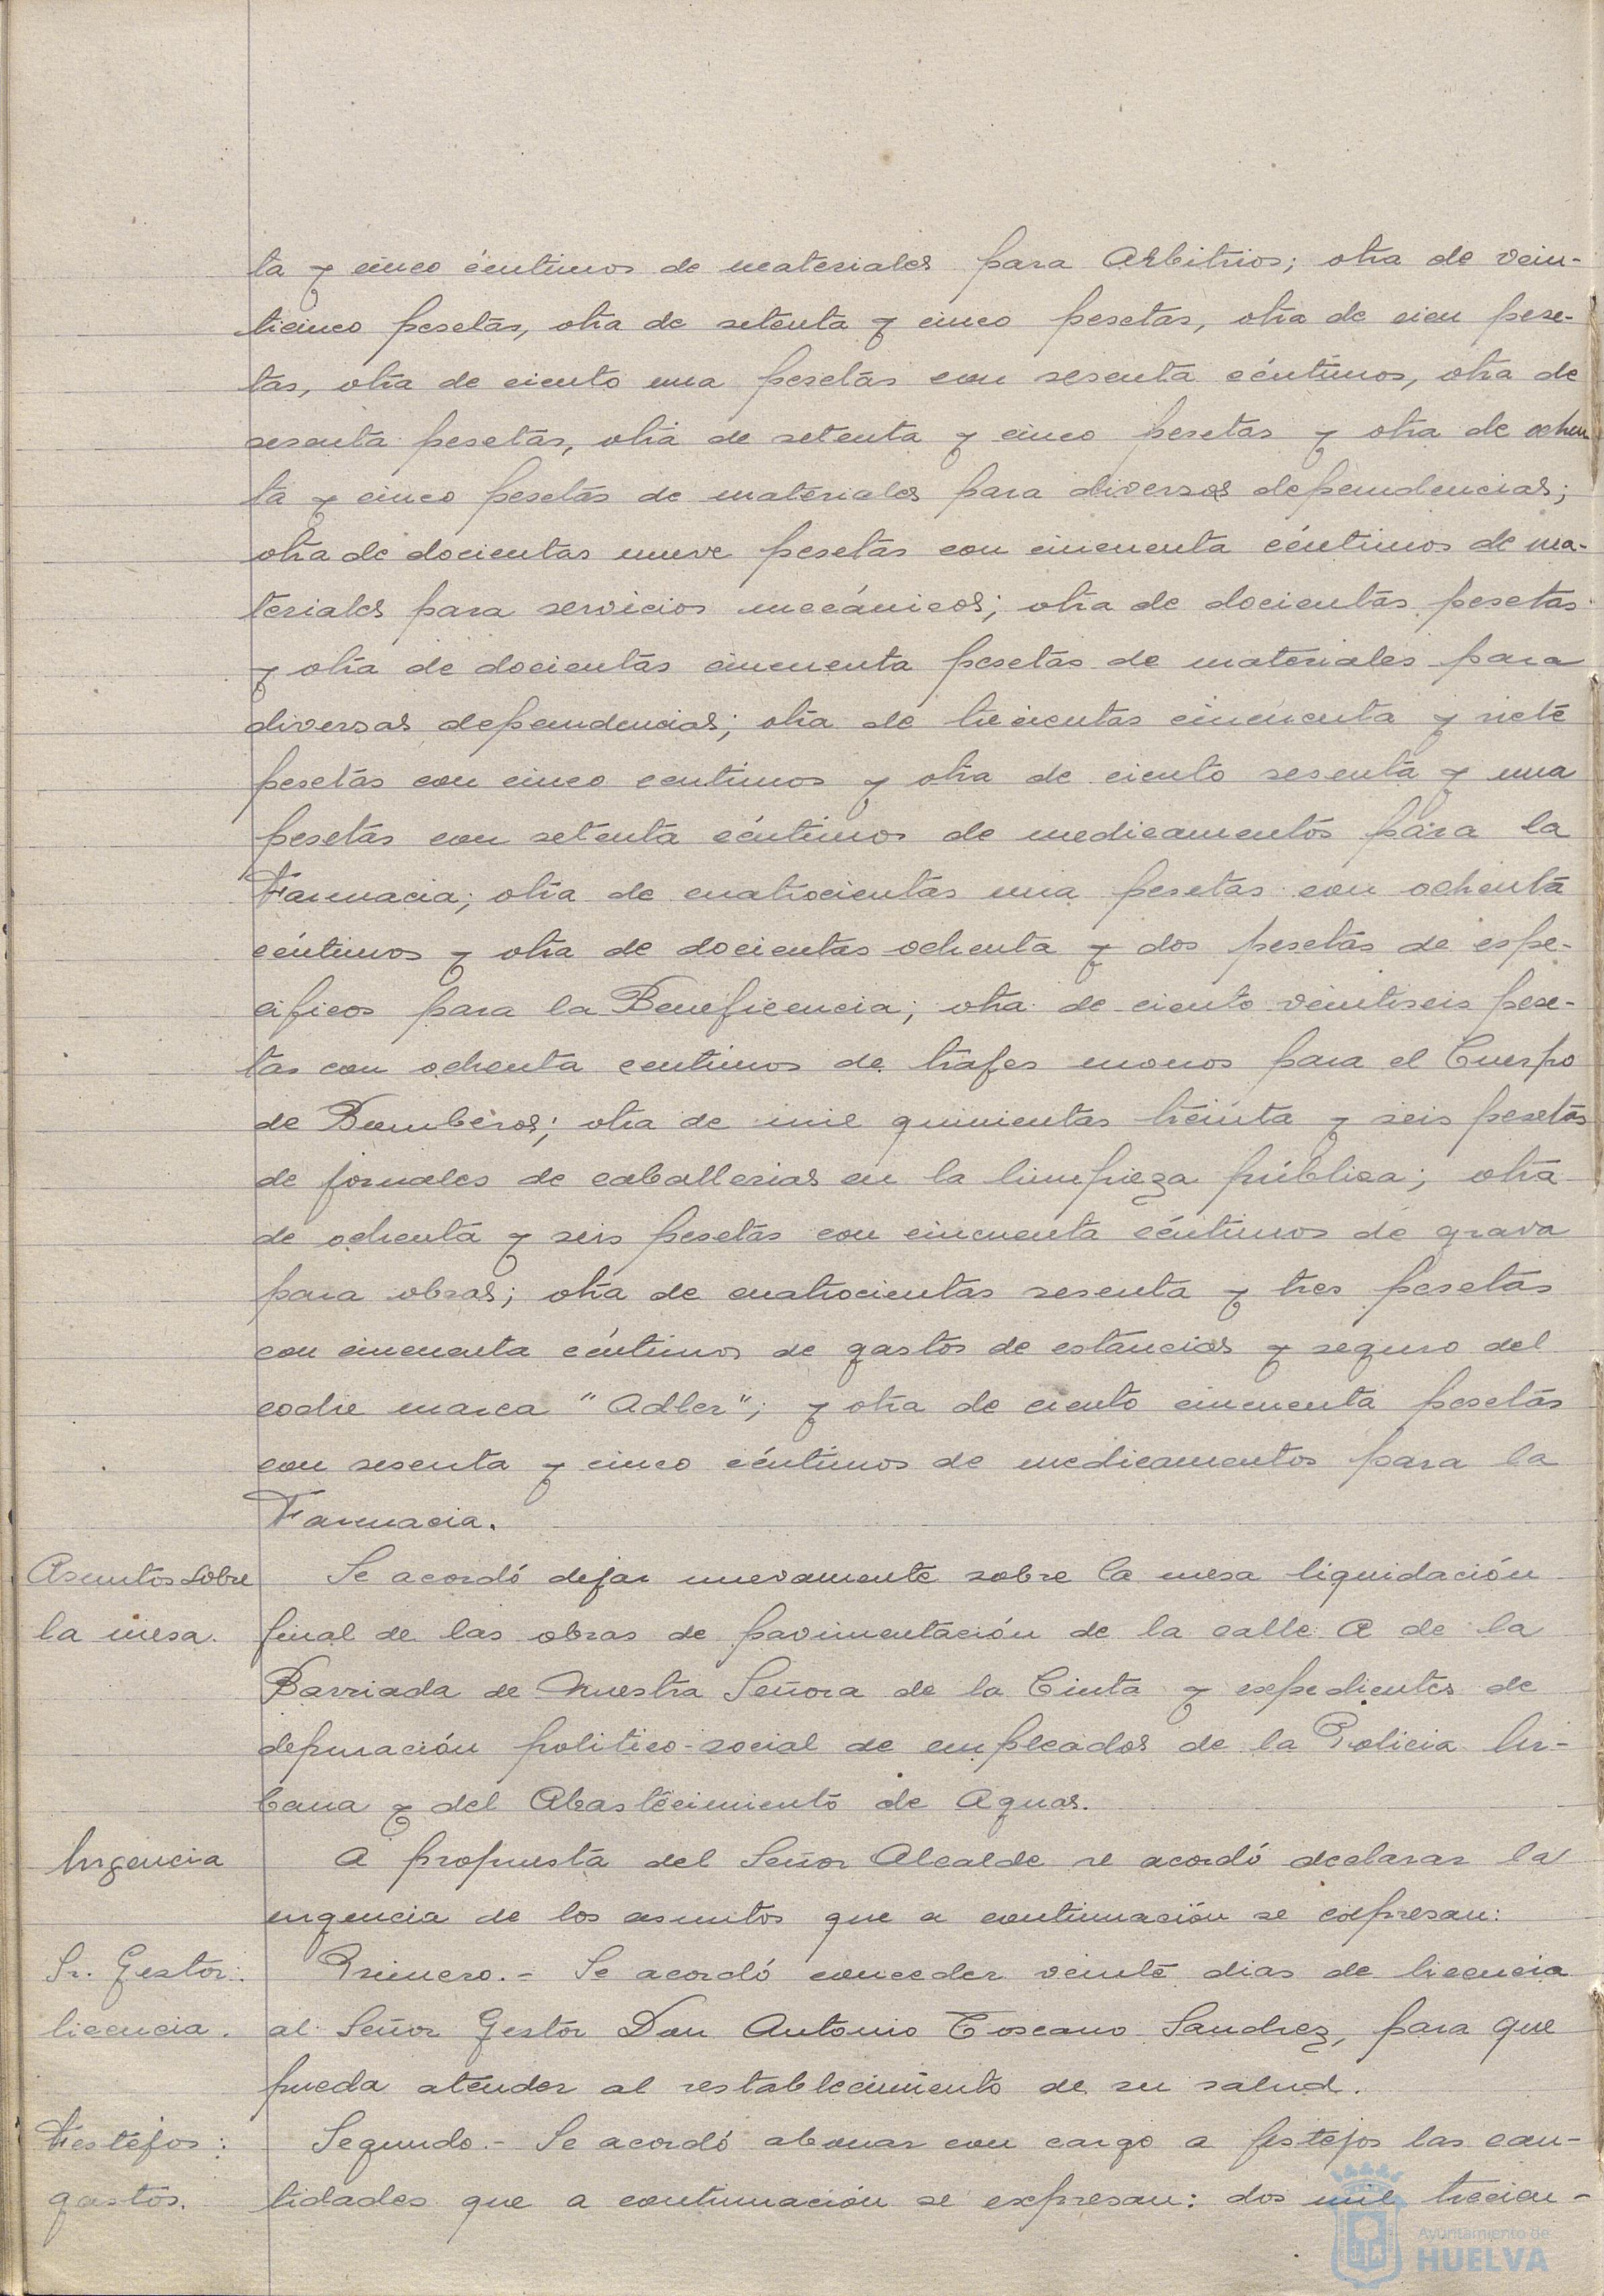 ta y cinco céntimos de materiales para Arbitrios; otra de vein-
ticinco pesetas, otra de setenta y cinco pesetas, otra de cien pese-
tas, otra de ciento una pesetas con sesenta céntimos, otra de
sesenta pesetas, otra de setenta y cinco pesetas y otra de ochen
ta y cinco pesetas de materiales para diversas dependencias;
otra de docientas nueve pesetas con cincuenta céntimos de ma-
teriales para servicios mecánicos; otra de docientas pesetas
y otra de docientas cincuenta pesetas de materiales para
diversas dependencias; otra de trecientas cincuenta y siete
pesetas con cinco centimos y otra de ciento sesenta y una
pesetas con setenta céntimos de medicamentos para la
Farmacia; otra de cuatrocientas una pesetas con ochenta
céntimos y otra de docientas ochenta y dos pesetas de espe-
cificos para la Beneficencia; otra de ciento veintiseis pese-
tas con ochenta centimos de trajes monos para el Cuerpo
de Bomberos; otra de mil quinientas treinta y seis pesetas
de jornales de caballerias en la limpieza pública; otra
de ochenta y seis pesetas con cincuenta céntimos de grava
para obras; otra de cuatrocientas sesenta y tres pesetas
con cincuenta céntimos de gastos de estancias y seguro del
coche marca "Adler"; y otra de ciento cincuenta pesetas
con sesenta y cinco céntimos de medicamentos para la
Farmacia.
Asuntos sobre Se acordó dejar nuevamente sobre la mesa liquidación
la mesa. final de las obras de pavimentación de la calle A de la
Barriada de Nuestra Señora de la Cinta y expedientes de
depuración politico-social de empleados de la Policia Ur-
bana y del Abastecimiento de Aguas.
Urgencia A propuesta del Señor Alcalde se acordó declarar la
urgencia de los asuntos que a continuación se expresan:
Sr. Gestor: Primero.- Se acordó conceder veinte dias de licencia
licencia. al Señor Gestor Don Antonio Toscano Sanchez, para que
pueda atender al restablecimiento de su salud.
Festejos: Segundo.- Se acordó abonar con cargo a festejos las can-
gastos. tidades que a continuación se expresan: dos mil trecien-
Ayuntamiento de
HUELVA